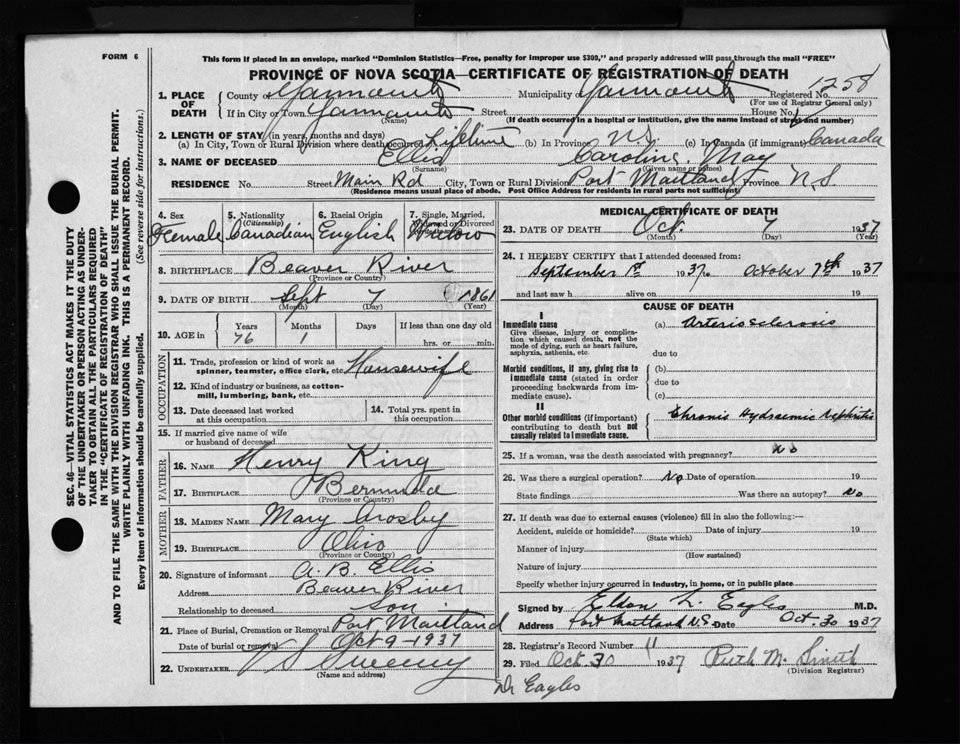 FORM 6
This form if placed in an envelope, marked "Dominion Statistics—Free, penalty for improper use $300," and properly addressed will pass through the mail "FREE"
PROVINCE OF NOVA SCOTIA—CERTIFICATE OF REGISTRATION OF DEATH
1. PLACE OF DEATH
County of Yarmouth Municipality of Yarmouth Registered No. 1258
(For use of Registrar General only)
If in City or Town Yarmouth Street House No.
(Name) (If death occurred in a hospital or institution, give the name instead of street and number)
2. LENGTH OF STAY (in years, months and days)
(a) In City, Town or Rural Division where death occurred Lifetime (b) In Province N.S. (c) In Canada (if immigrant) Canada
3. NAME OF DECEASED Ellis Caroline May
(Surname) (Given name or names)
RESIDENCE No. Street Main Rd City, Town or Rural Division Port Maitland Province N.S
(Residence means usual place of abode. Post Office Address for residents in rural parts not sufficient)
4. Sex
Female
5. Nationality
(Citizenship)
Canadian
6. Racial Origin
English
7. Single, Married, Widowed or Divorced
Widow
8. BIRTHPLACE Beaver River
(Province or Country)
9. DATE OF BIRTH Sept 7 1861
(Month) (Day) (Year)
10. AGE in
Years Months Days If less than one day old
76 1 hrs. or min.
OCCUPATION
11. Trade, profession or kind of work as
spinner, teamster, office clerk, etc. Housewife
12. Kind of industry or business, as cotton-
mill, lumbering, bank, etc.
13. Date deceased last worked
at this occupation
14. Total yrs. spent in
this occupation
15. If married give name of wife
or husband of deceased
FATHER
16. NAME Henry King
17. BIRTHPLACE Bermuda
(Province or Country)
MOTHER
18. MAIDEN NAME Mary Crosby
19. BIRTHPLACE Ohio
(Province or Country)
20. Signature of informant A. B. Ellis
Address Beaver River
Relationship to deceased son
21. Place of Burial, Cremation or Removal Port Maitland
Date of burial or removal Oct 9-1937
22. UNDERTAKER Sweeny
(Name and address)
MEDICAL CERTIFICATE OF DEATH
23. DATE OF DEATH Oct. 7 1937
(Month) (Day) (Year)
24. I HEREBY CERTIFY that I attended deceased from:
September 1st 1937 to October 7th 1937
and last saw h alive on 19
CAUSE OF DEATH
I
Immediate cause (a) Arteriosclerosis
Give disease, injury or complica-
tion which caused death, not the
mode of dying, such as heart failure,
asphyxia, asthenia, etc.
due to
Morbid conditions, if any, giving rise to
immediate cause (stated in order
proceeding backwards from im-
mediate cause).
(b)
due to
(c)
II
Other morbid conditions (if important)
contributing to death but not
causally related to immediate cause.
Chronic Hydraemic Nephritis
25. If a woman, was the death associated with pregnancy? No
26. Was there a surgical operation? No Date of operation 19
State findings Was there an autopsy? No
27. If death was due to external causes (violence) fill in also the following:—
Accident, suicide or homicide? Date of injury 19
(State which)
Manner of injury
(How sustained)
Nature of injury
Specify whether injury occurred in industry, in home, or in public place
Signed by Elton L. Eagles M.D.
Address Port Maitland N.S. Date Oct. 30 1937
28. Registrar's Record Number 11
29. Filed Oct 30 1937 Ruth M. Smith
(Division Registrar)
Dr Eagles
SEC. 46—VITAL STATISTICS ACT MAKES IT THE DUTY
OF THE UNDERTAKER OR PERSON ACTING AS UNDER-
TAKER TO OBTAIN ALL THE PARTICULARS REQUIRED
IN THE "CERTIFICATE OF REGISTRATION OF DEATH"
AND TO FILE THE SAME WITH THE DIVISION REGISTRAR WHO SHALL ISSUE THE BURIAL PERMIT.
WRITE PLAINLY WITH UNFADING INK. THIS IS A PERMANENT RECORD.
Every item of information should be carefully supplied. (See reverse side for instructions.)